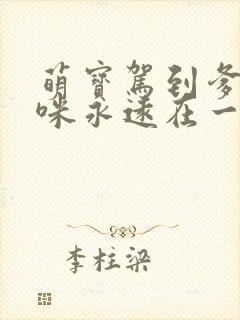 萌寶駕到爹
咪永遠在一
李柱梁